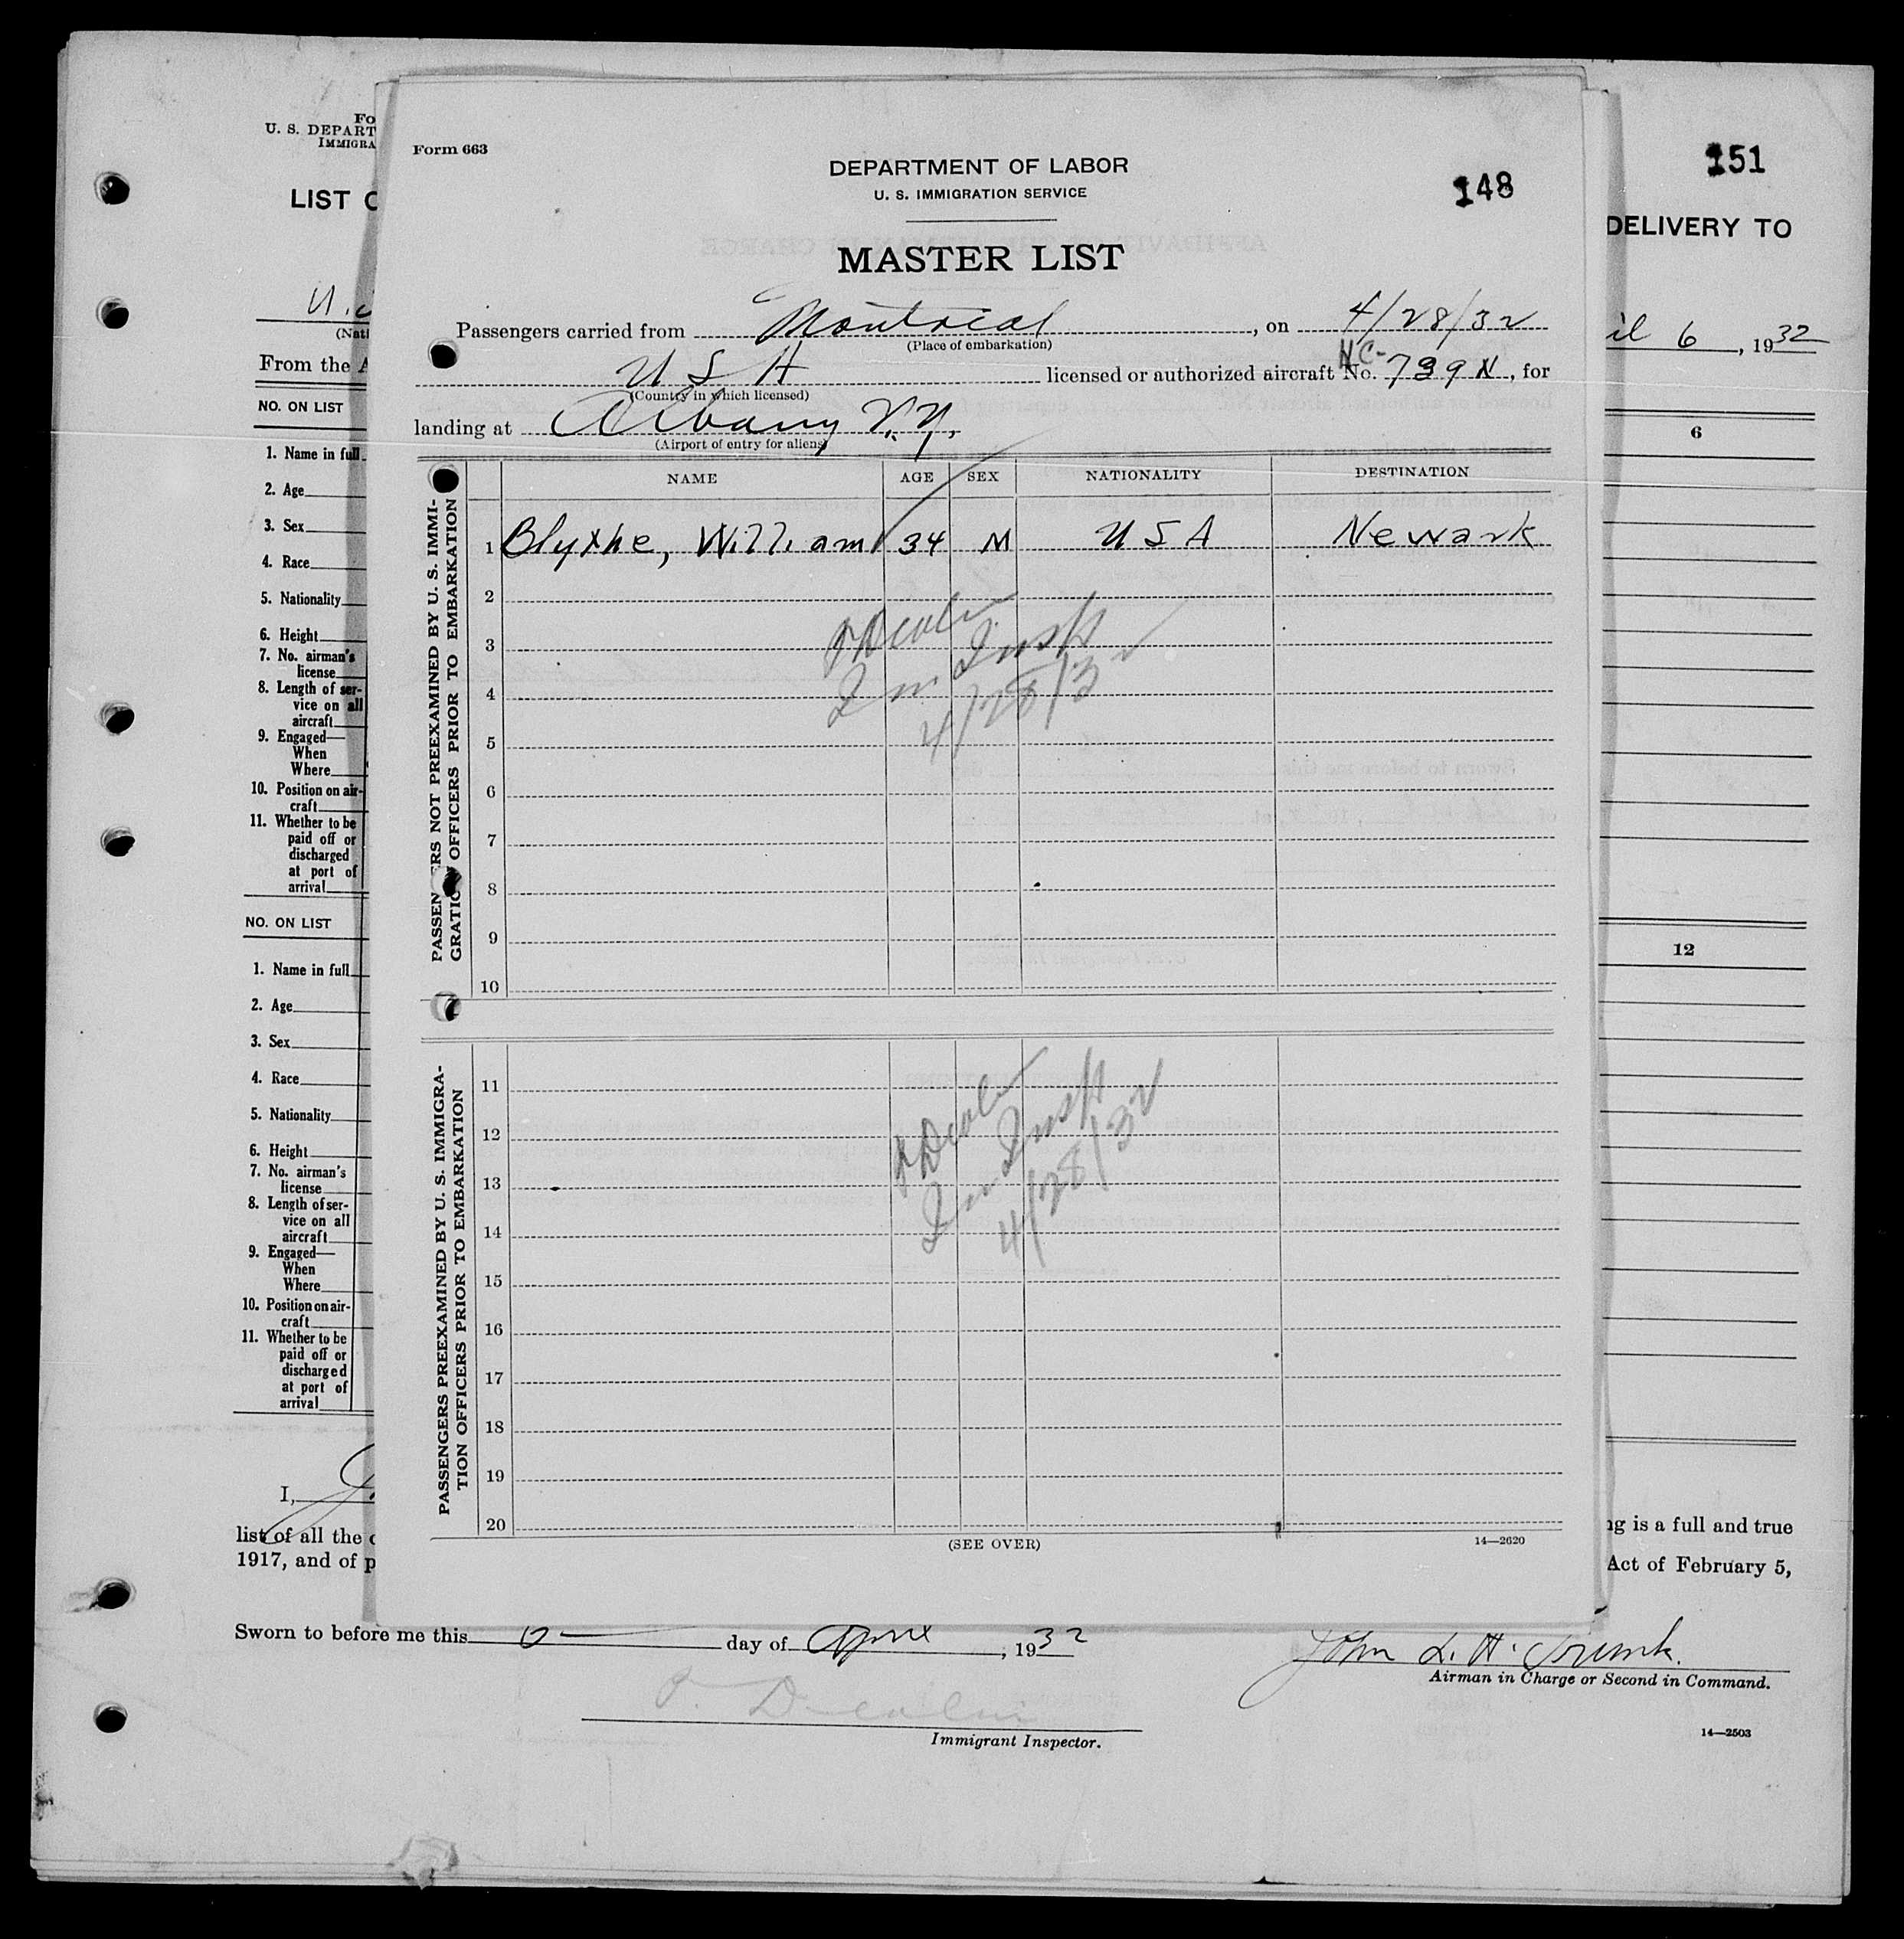 Form 663
DEPARTMENT OF LABOR
U. S. IMMIGRATION SERVICE
148
MASTER LIST
Passengers carried from Montreal, on 4/28/32
(Place of embarkation)
USA licensed or authorized aircraft No. NC-739N, for
(Country in which licensed)
landing at Albany N.Y.
(Airport of entry for aliens)
NAME AGE SEX NATIONALITY DESTINATION
PASSENGERS NOT PREEXAMINED BY U. S. IMMI-
GRATION OFFICERS PRIOR TO EMBARKATION
1 Blythe, William 34 M USA Newark
2
3
4
5
6
7
8
9
10
Im. Insp
4/28/32
PASSENGERS PREEXAMINED BY U. S. IMMIGRA-
TION OFFICERS PRIOR TO EMBARKATION
11
12
13
14
15
16
17
18
19
20
Im. Insp
4/28/32
(SEE OVER)
14—2620
Fo
U. S. DEPART
IMMIGRA
151
LIST O
DELIVERY TO
U.S
(Nati
il 6, 1932
From the A
NO. ON LIST
6
1. Name in full
2. Age
3. Sex
4. Race
5. Nationality
6. Height
7. No. airman's
license
8. Length of ser-
vice on all
aircraft
9. Engaged—
When
Where
10. Position on air-
craft
11. Whether to be
paid off or
discharged
at port of
arrival
NO. ON LIST
12
1. Name in full
2. Age
3. Sex
4. Race
5. Nationality
6. Height
7. No. airman's
license
8. Length of ser-
vice on all
aircraft
9. Engaged—
When
Where
10. Position on air-
craft
11. Whether to be
paid off or
discharged
at port of
arrival
I, J
ng is a full and true
list of all the
1917, and of p
Act of February 5,
Sworn to before me this 6 day of April, 1932
John L. H. Trunk.
Airman in Charge or Second in Command.
Immigrant Inspector.
14—2503